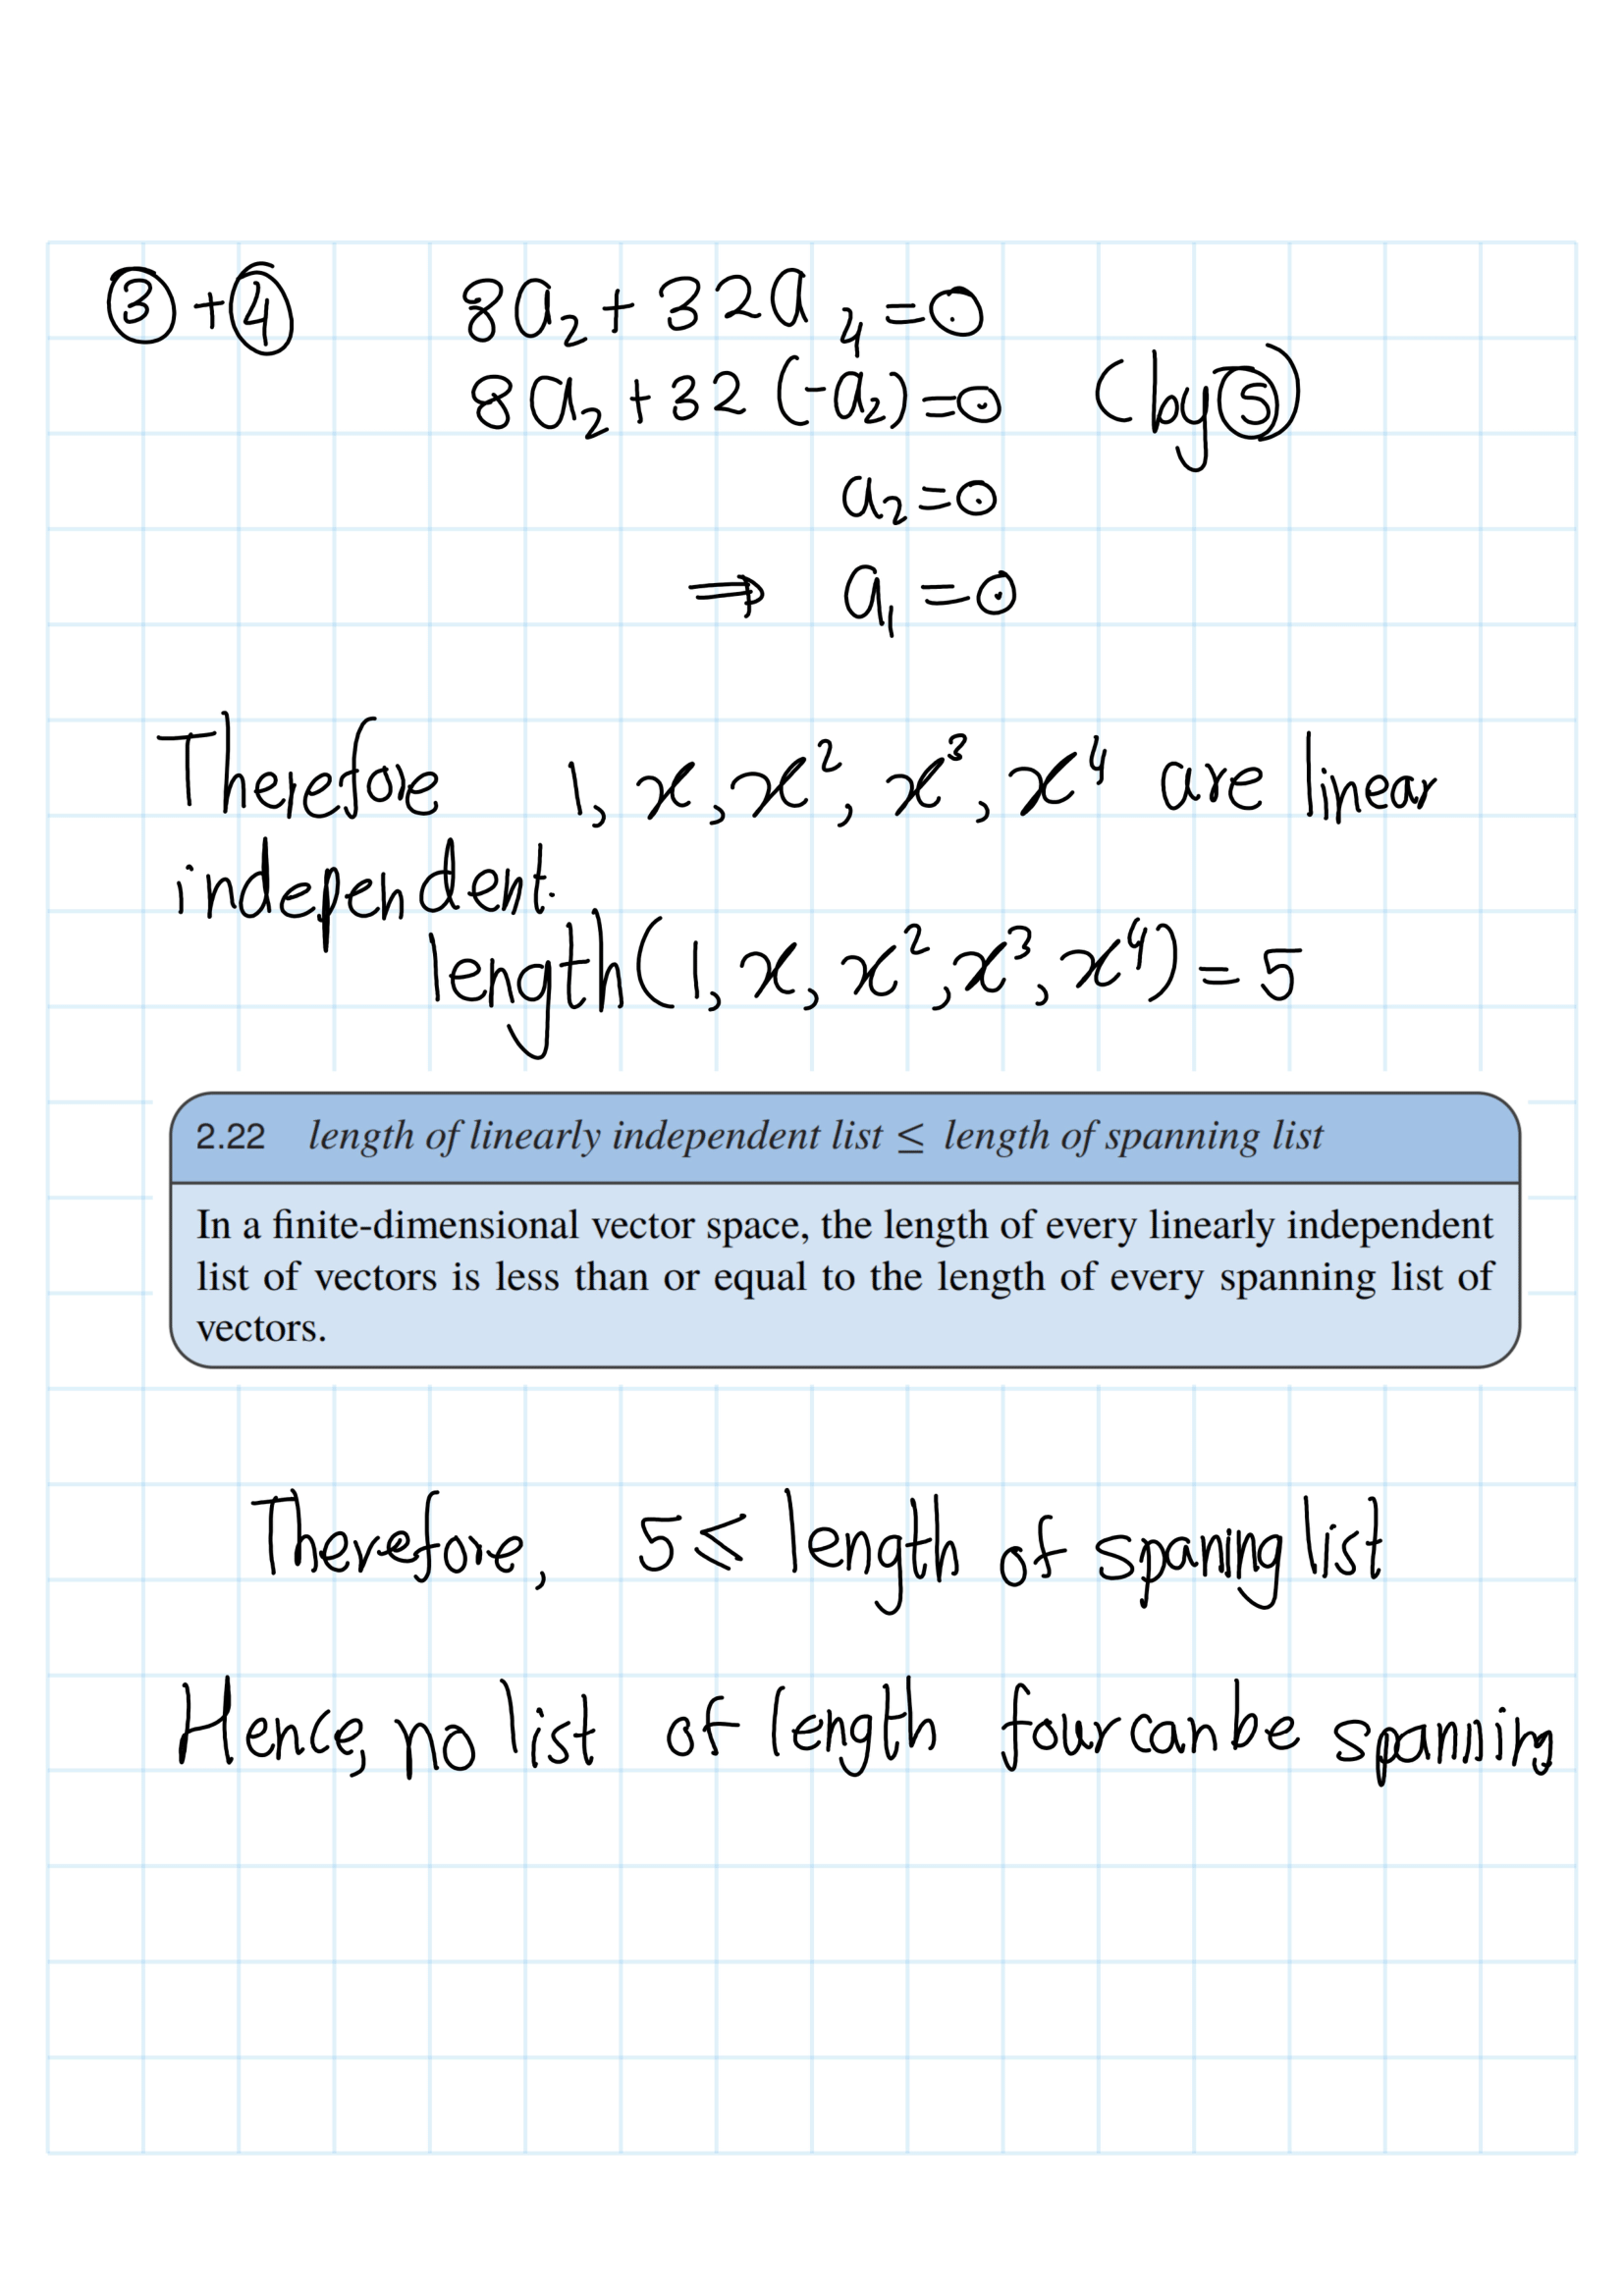 ③+④ 8a₂+32a₄=0
8a₂+32(-a₂)=0 (by⑤)
a₂=0
⇒ a₁=0
Therefore 1, x, x², x³, x⁴ are linear
independent.
length(1, x, x², x³, x⁴) = 5
2.22 length of linearly independent list ≤ length of spanning list
In a finite-dimensional vector space, the length of every linearly independent
list of vectors is less than or equal to the length of every spanning list of
vectors.
Therefore, 5 ≤ length of spaning list
Hence, no list of length four can be spanning